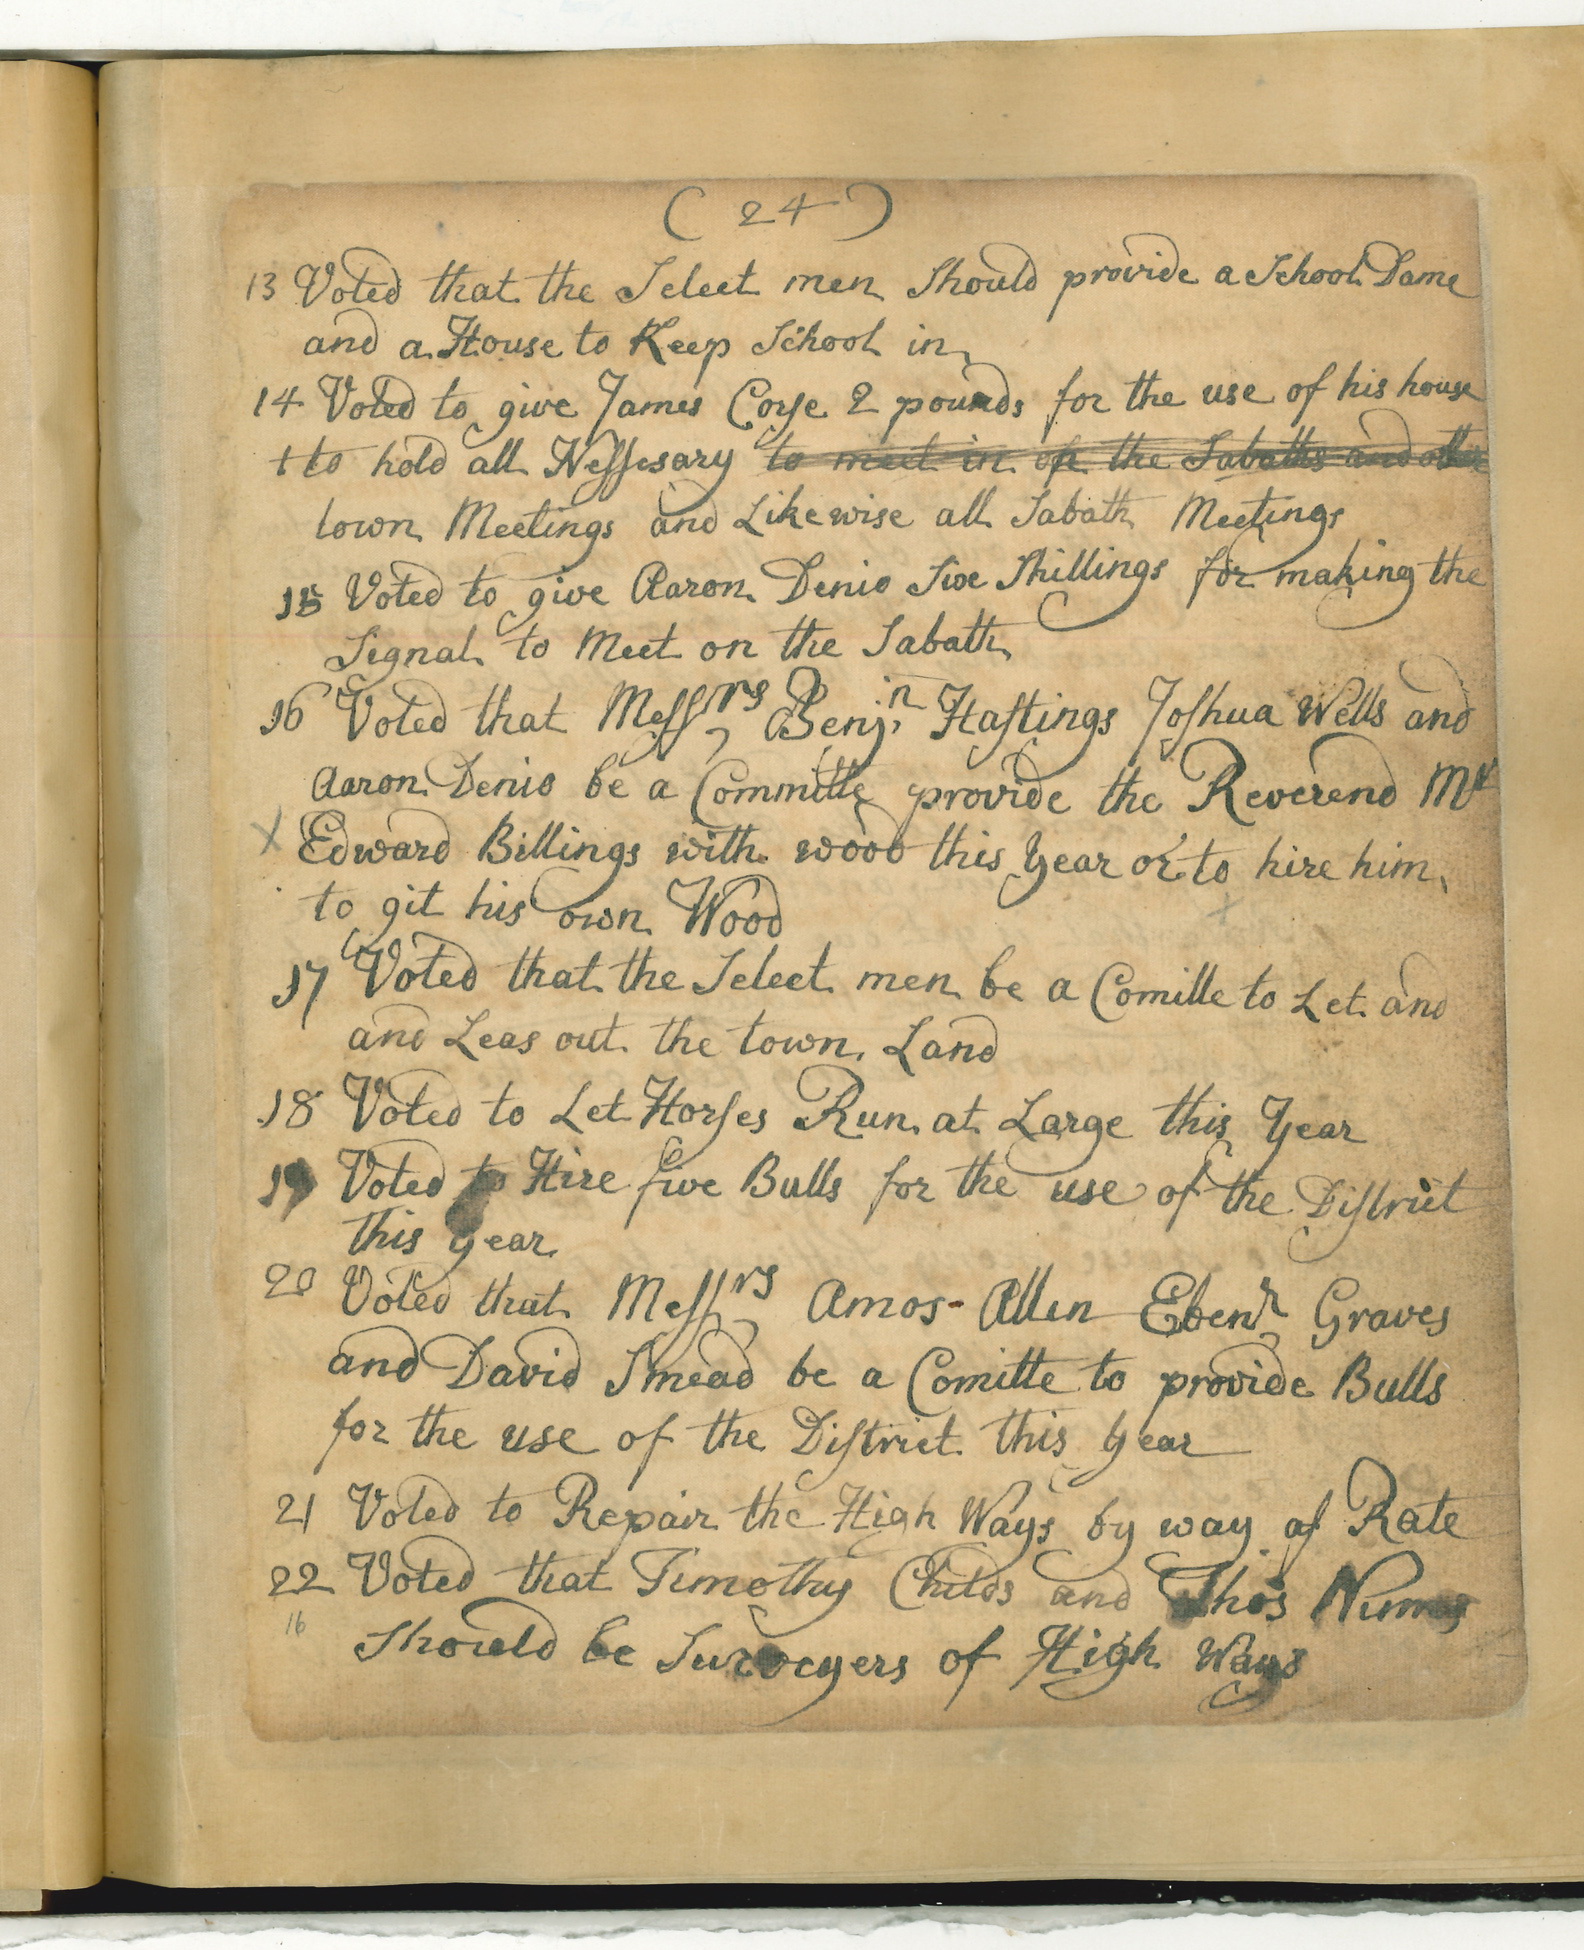 ( 24 )
13 Voted that the Select men Should provide a School Dame
and a House to Keep School in
14 Voted to give James Corse 2 pounds for the use of his house
+ to hold all Nessesary to meet in on the Sabaths and other
town Meetings and Likewise all Sabath Meetings
15 Voted to give Aaron Denio Six Shillings for making the
Signal to Meet on the Sabath
16 Voted that Messrs Benjn Hastings Joshua Wells and
Aaron Denio be a Committe provide the Reverend Mr
x Edward Billings with wood this year or to hire him
to git his own Wood
17 Voted that the Select men be a Comitte to Let and
and Leas out the town Land
18 Voted to Let Horses Run at Large this Year
19 Voted to Hire five Bulls for the use of the District
this year
20 Voted that Messrs Amos Allen Ebenr Graves
and David Smead be a Comitte to provide Bulls
for the use of the District this year
21 Voted to Repair the High Ways by way of Rate
22 Voted that Timothy Childs and Thos Nims
16
Should be Surveyers of High Ways